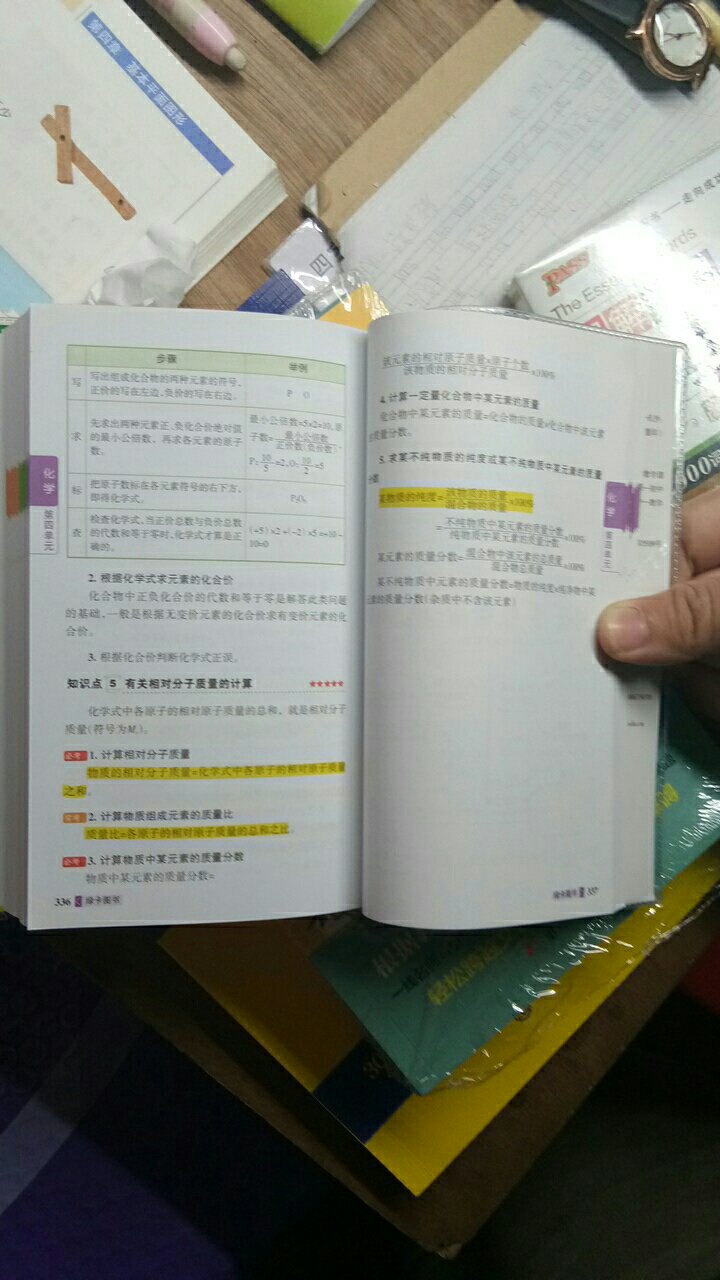 第四章 基本平面图形
四
PASS
The Esse
rds
步骤 举例
写 写出组成化合物的两种元素的符号,
正价的写在左边,负价的写在右边。
P O
求 先求出两种元素正、负化合价绝对值
的最小公倍数,再求各元素的原子
数。
最小公倍数=5×2=10,原
子数=最小公倍数/正价数(负价数),
P:10/5=2,O:10/2=5
标 把原子数标在各元素符号的右下方,
即得化学式。
P₂O₅
查 检查化学式,当正价总数与负价总数
的代数和等于零时,化学式才算是正
确的。
(+5)×2+(-2)×5=+10-
10=0
化学
第四单元
2. 根据化学式求元素的化合价
化合物中正负化合价的代数和等于零是解答此类问题
的基础,一般是根据无变价元素的化合价求有变价元素的化
合价。
3. 根据化合价判断化学式正误。
知识点 5 有关相对分子质量的计算 ★★★★★
化学式中各原子的相对原子质量的总和,就是相对分子
质量(符号为Mᵣ)。
必考 1. 计算相对分子质量
物质的相对分子质量=化学式中各原子的相对原子质量
之和。
常考 2. 计算物质组成元素的质量比
质量比=各原子的相对原子质量的总和之比。
必考 3. 计算物质中某元素的质量分数
物质中某元素的质量分数=
336 绿卡图书
该元素的相对原子质量×原子个数/该物质的相对分子质量×100%
4. 计算一定量化合物中某元素的质量
化合物中某元素的质量=化合物的质量×化合物中该元素
的质量分数。
5. 求某不纯物质的纯度或某不纯物质中某元素的质量
分数
某物质的纯度=该物质的质量/混合物的质量×100%
=不纯物质中某元素的质量分数/纯物质中某元素的质量分数×100%
某元素的质量分数=混合物中该元素的总质量/混合物总质量×100%
某不纯物质中元素的质量分数=物质的纯度×纯净物中某
元素的质量分数(杂质中不含该元素)
化学
第四单元
绿卡图书 337